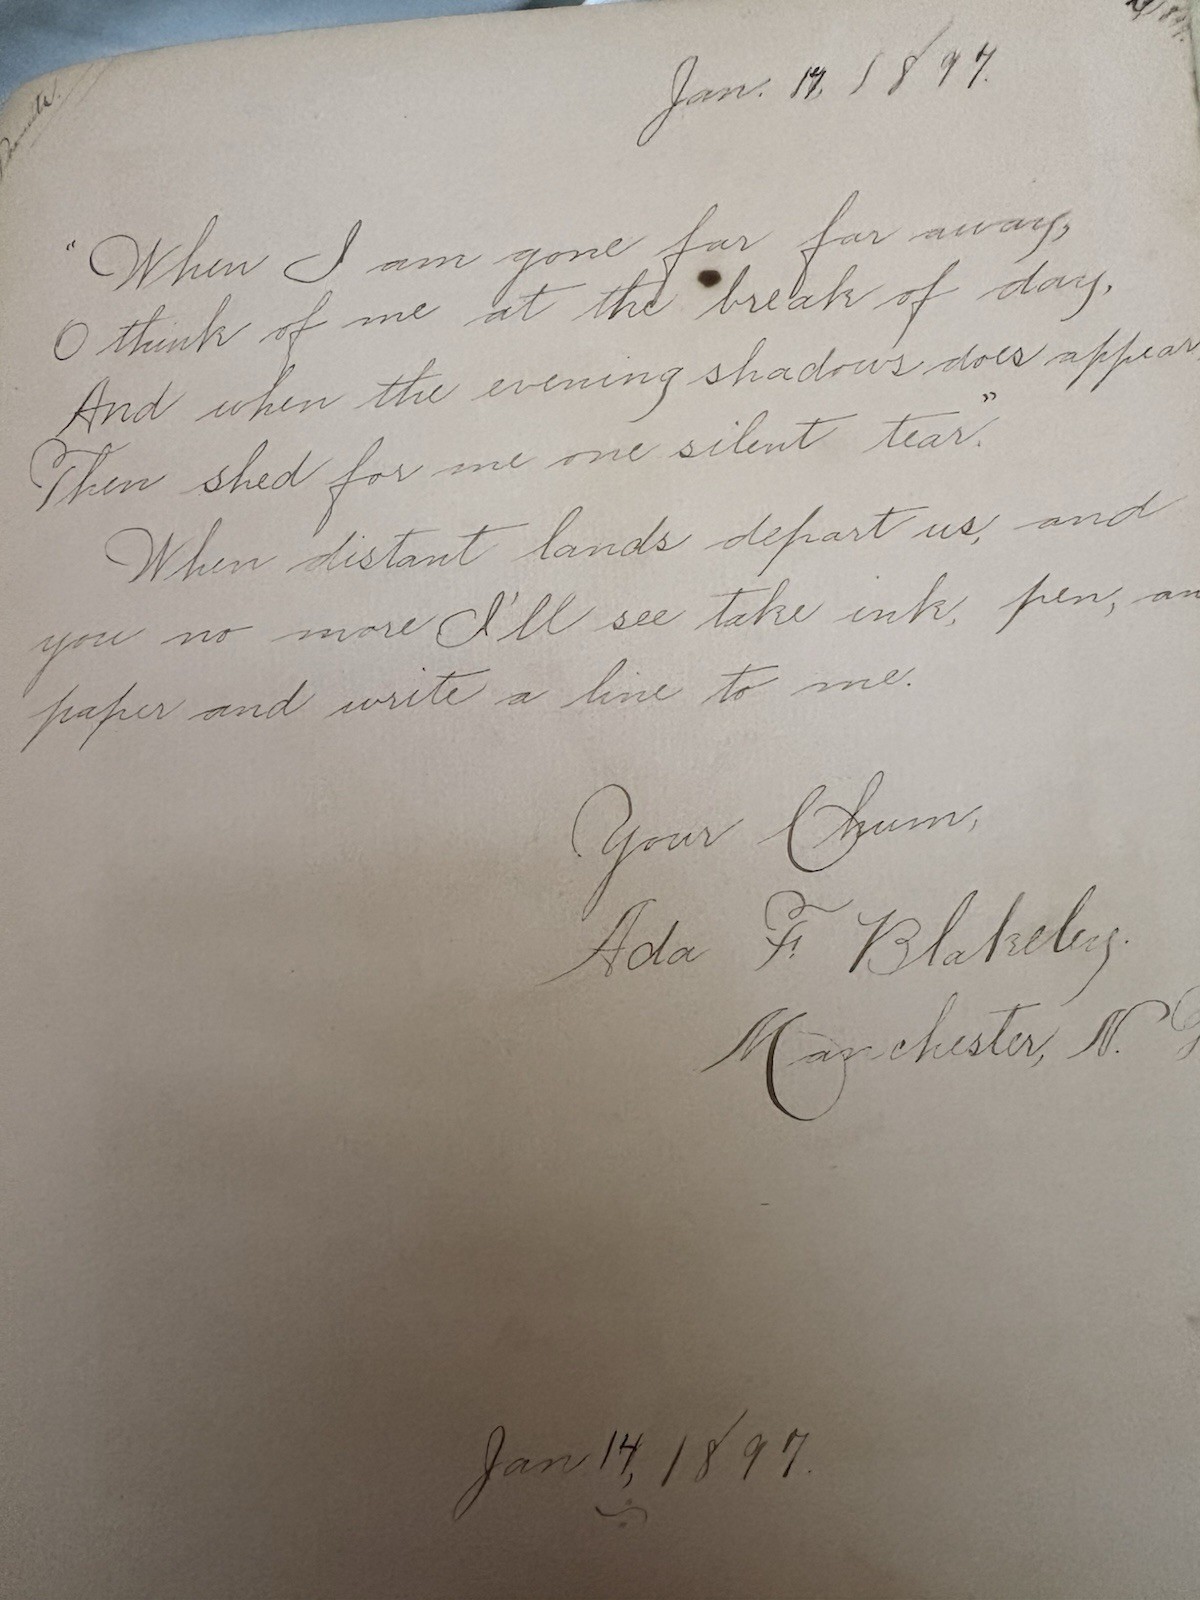 Jan. 14, 1897.
"When I am gone far far away,
O think of me at the break of day,
And when the evening shadows does appear
Then shed for me one silent tear."
When distant lands depart us, and
you no more I'll see take ink, pen, an
paper and write a line to me.
Your Chum,
Ada F. Blakeley.
Manchester, N.
Jan 14, 1897.